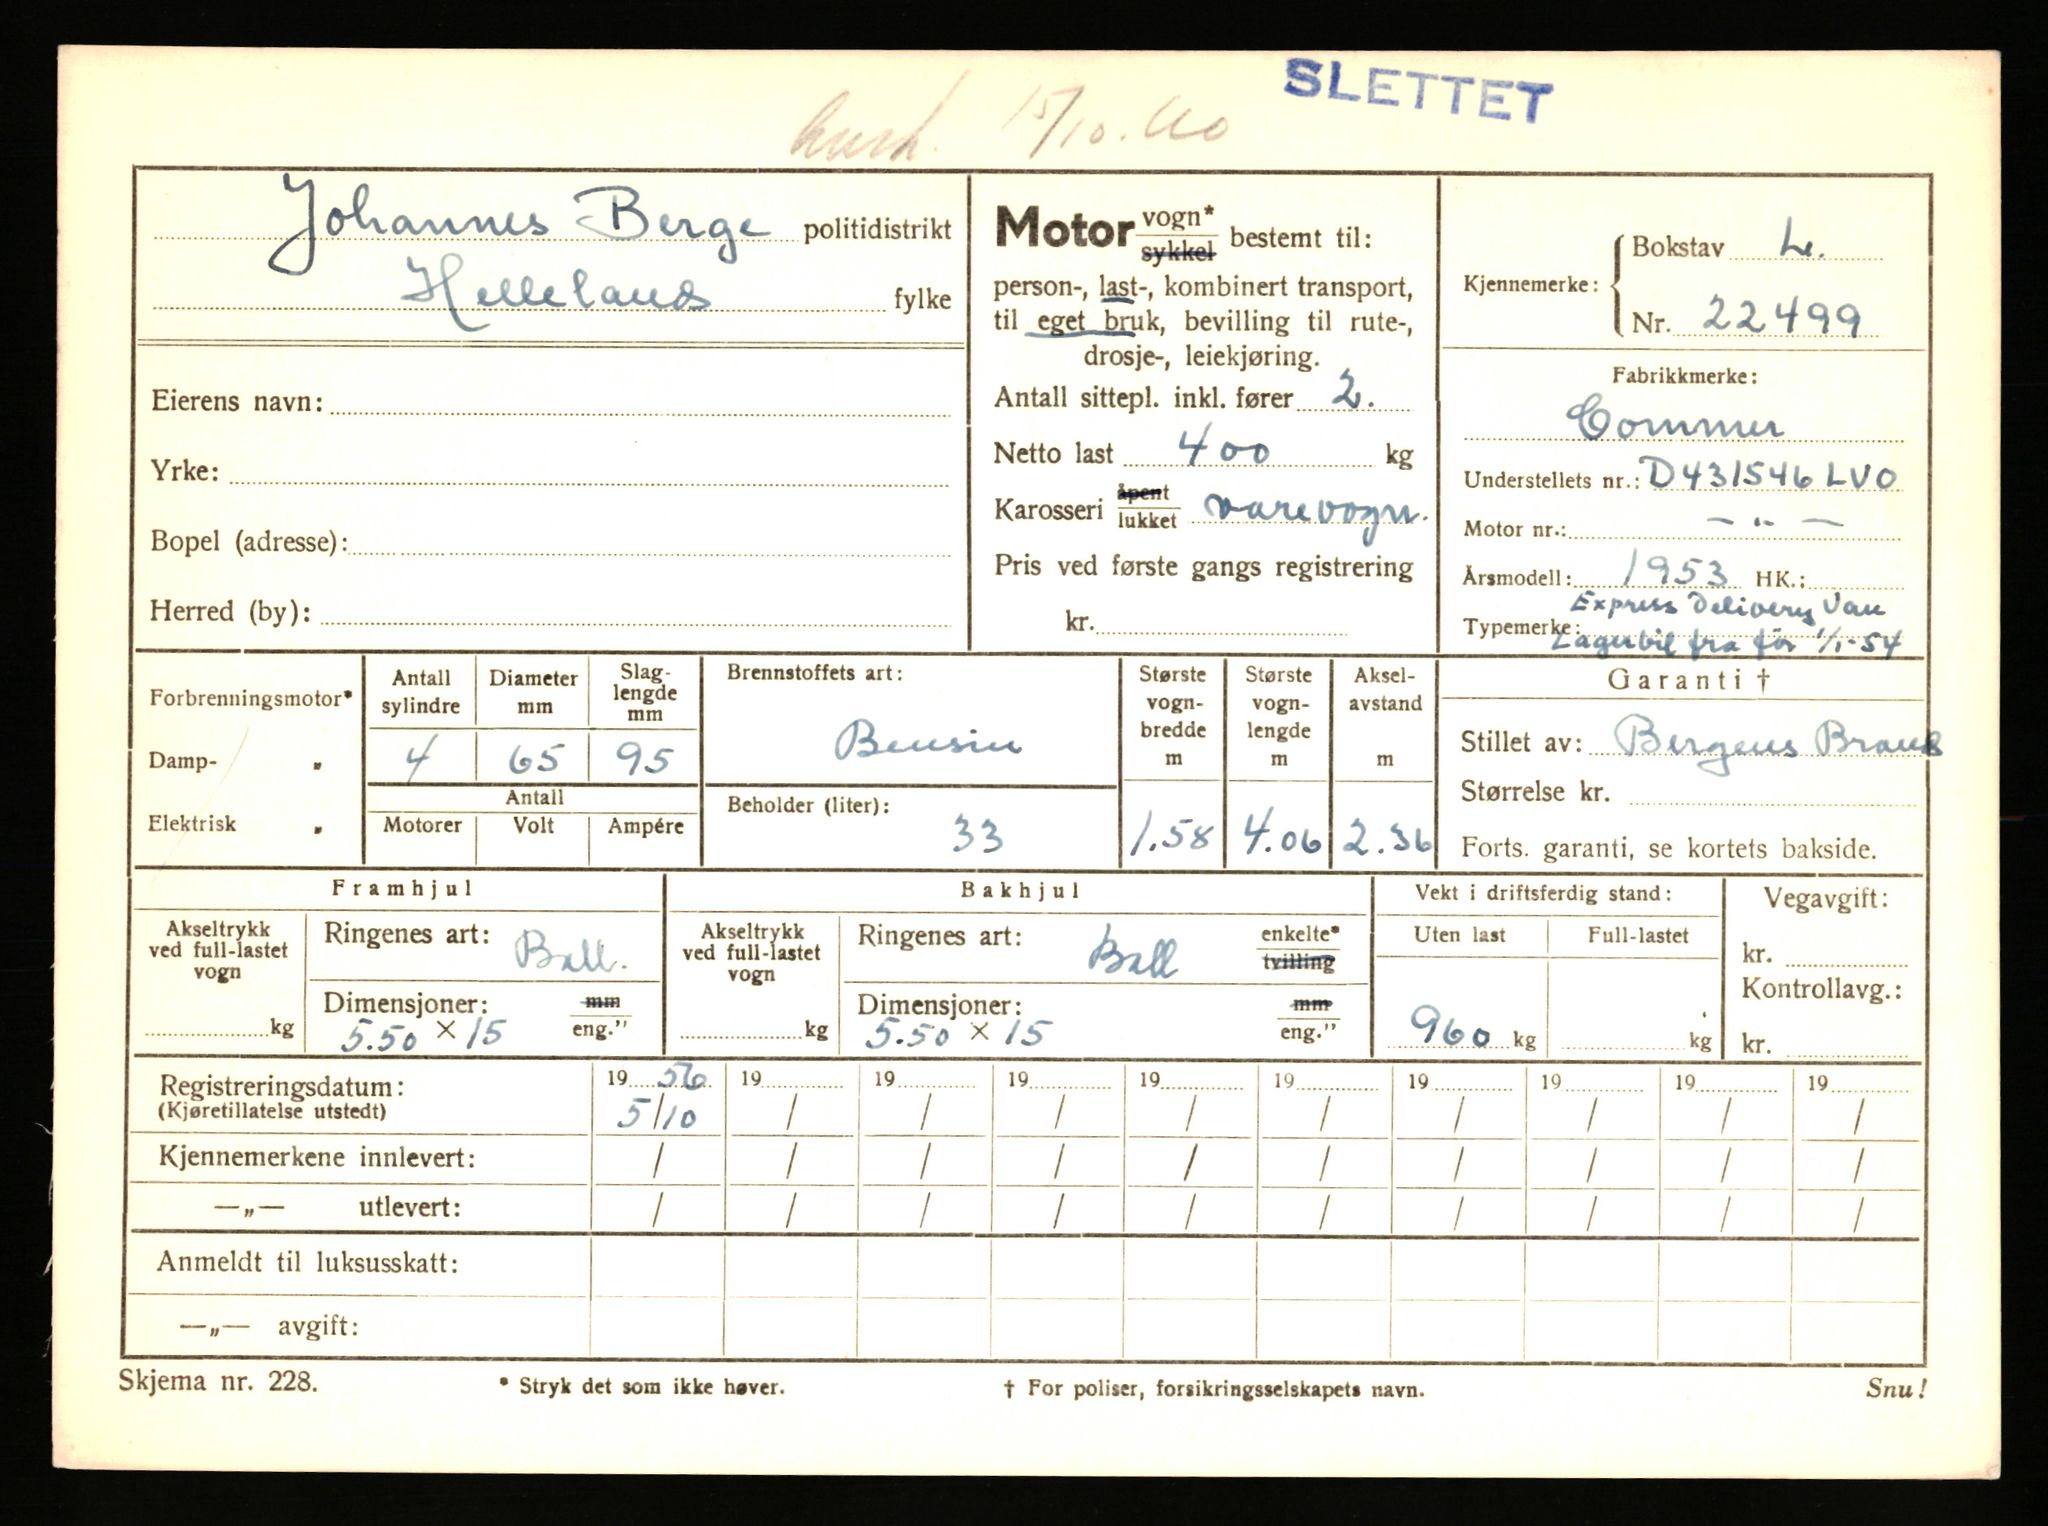 SLETTET
15/10.60
Johannes Berge politidistrikt
Helleland fylke
Eierens navn:
Yrke:
Bopel (adresse):
Herred (by):
Motor vogn* sykkel bestemt til:
person-, last-, kombinert transport,
til eget bruk, bevilling til rute-,
drosje-, leiekjøring.
Antall sittepl. inkl. fører 2.
Netto last 400 kg
Karosseri åpent lukket varevogn.
Pris ved første gangs registrering
kr.
Kjennemerke: Bokstav L.
Nr. 22499
Fabrikkmerke:
Commer
Understellets nr.: D431546 LVO
Motor nr.: — „ —
Årsmodell: 1953 HK.:
Express Delivery Van
Typemerke: Lagerbil fra før 1/1-54
Forbrenningsmotor*
Damp- „
Elektrisk „
Antall sylindre
4
Diameter mm
65
Slag-lengde mm
95
Antall
Motorer Volt Ampére
Brennstoffets art:
Bensin
Beholder (liter):
33
Største vogn-bredde m
1.58
Største vogn-lengde m
4.06
Aksel-avstand m
2.36
Garanti †
Stillet av: Bergens Brand
Størrelse kr.
Forts. garanti, se kortets bakside.
Framhjul
Akseltrykk ved full-lastet vogn
kg
Ringenes art: Ball.
Dimensjoner: mm
5.50 × 15 eng."
Bakhjul
Akseltrykk ved full-lastet vogn
kg
Ringenes art: Ball enkelte* tvilling
Dimensjoner: mm
5.50 × 15 eng."
Vekt i driftsferdig stand:
Uten last Full-lastet
960 kg kg
Vegavgift:
kr.
Kontrollavg.:
kr.
Registreringsdatum: 19 56 19 19 19 19 19 19 19 19 19
(Kjøretillatelse utstedt) 5/10 / / / / / / / / /
Kjennemerkene innlevert: / / / / / / / / / /
—„— utlevert: / / / / / / / / / /
Anmeldt til luksusskatt:
—„— avgift:
Skjema nr. 228. * Stryk det som ikke høver. † For poliser, forsikringsselskapets navn. Snu!